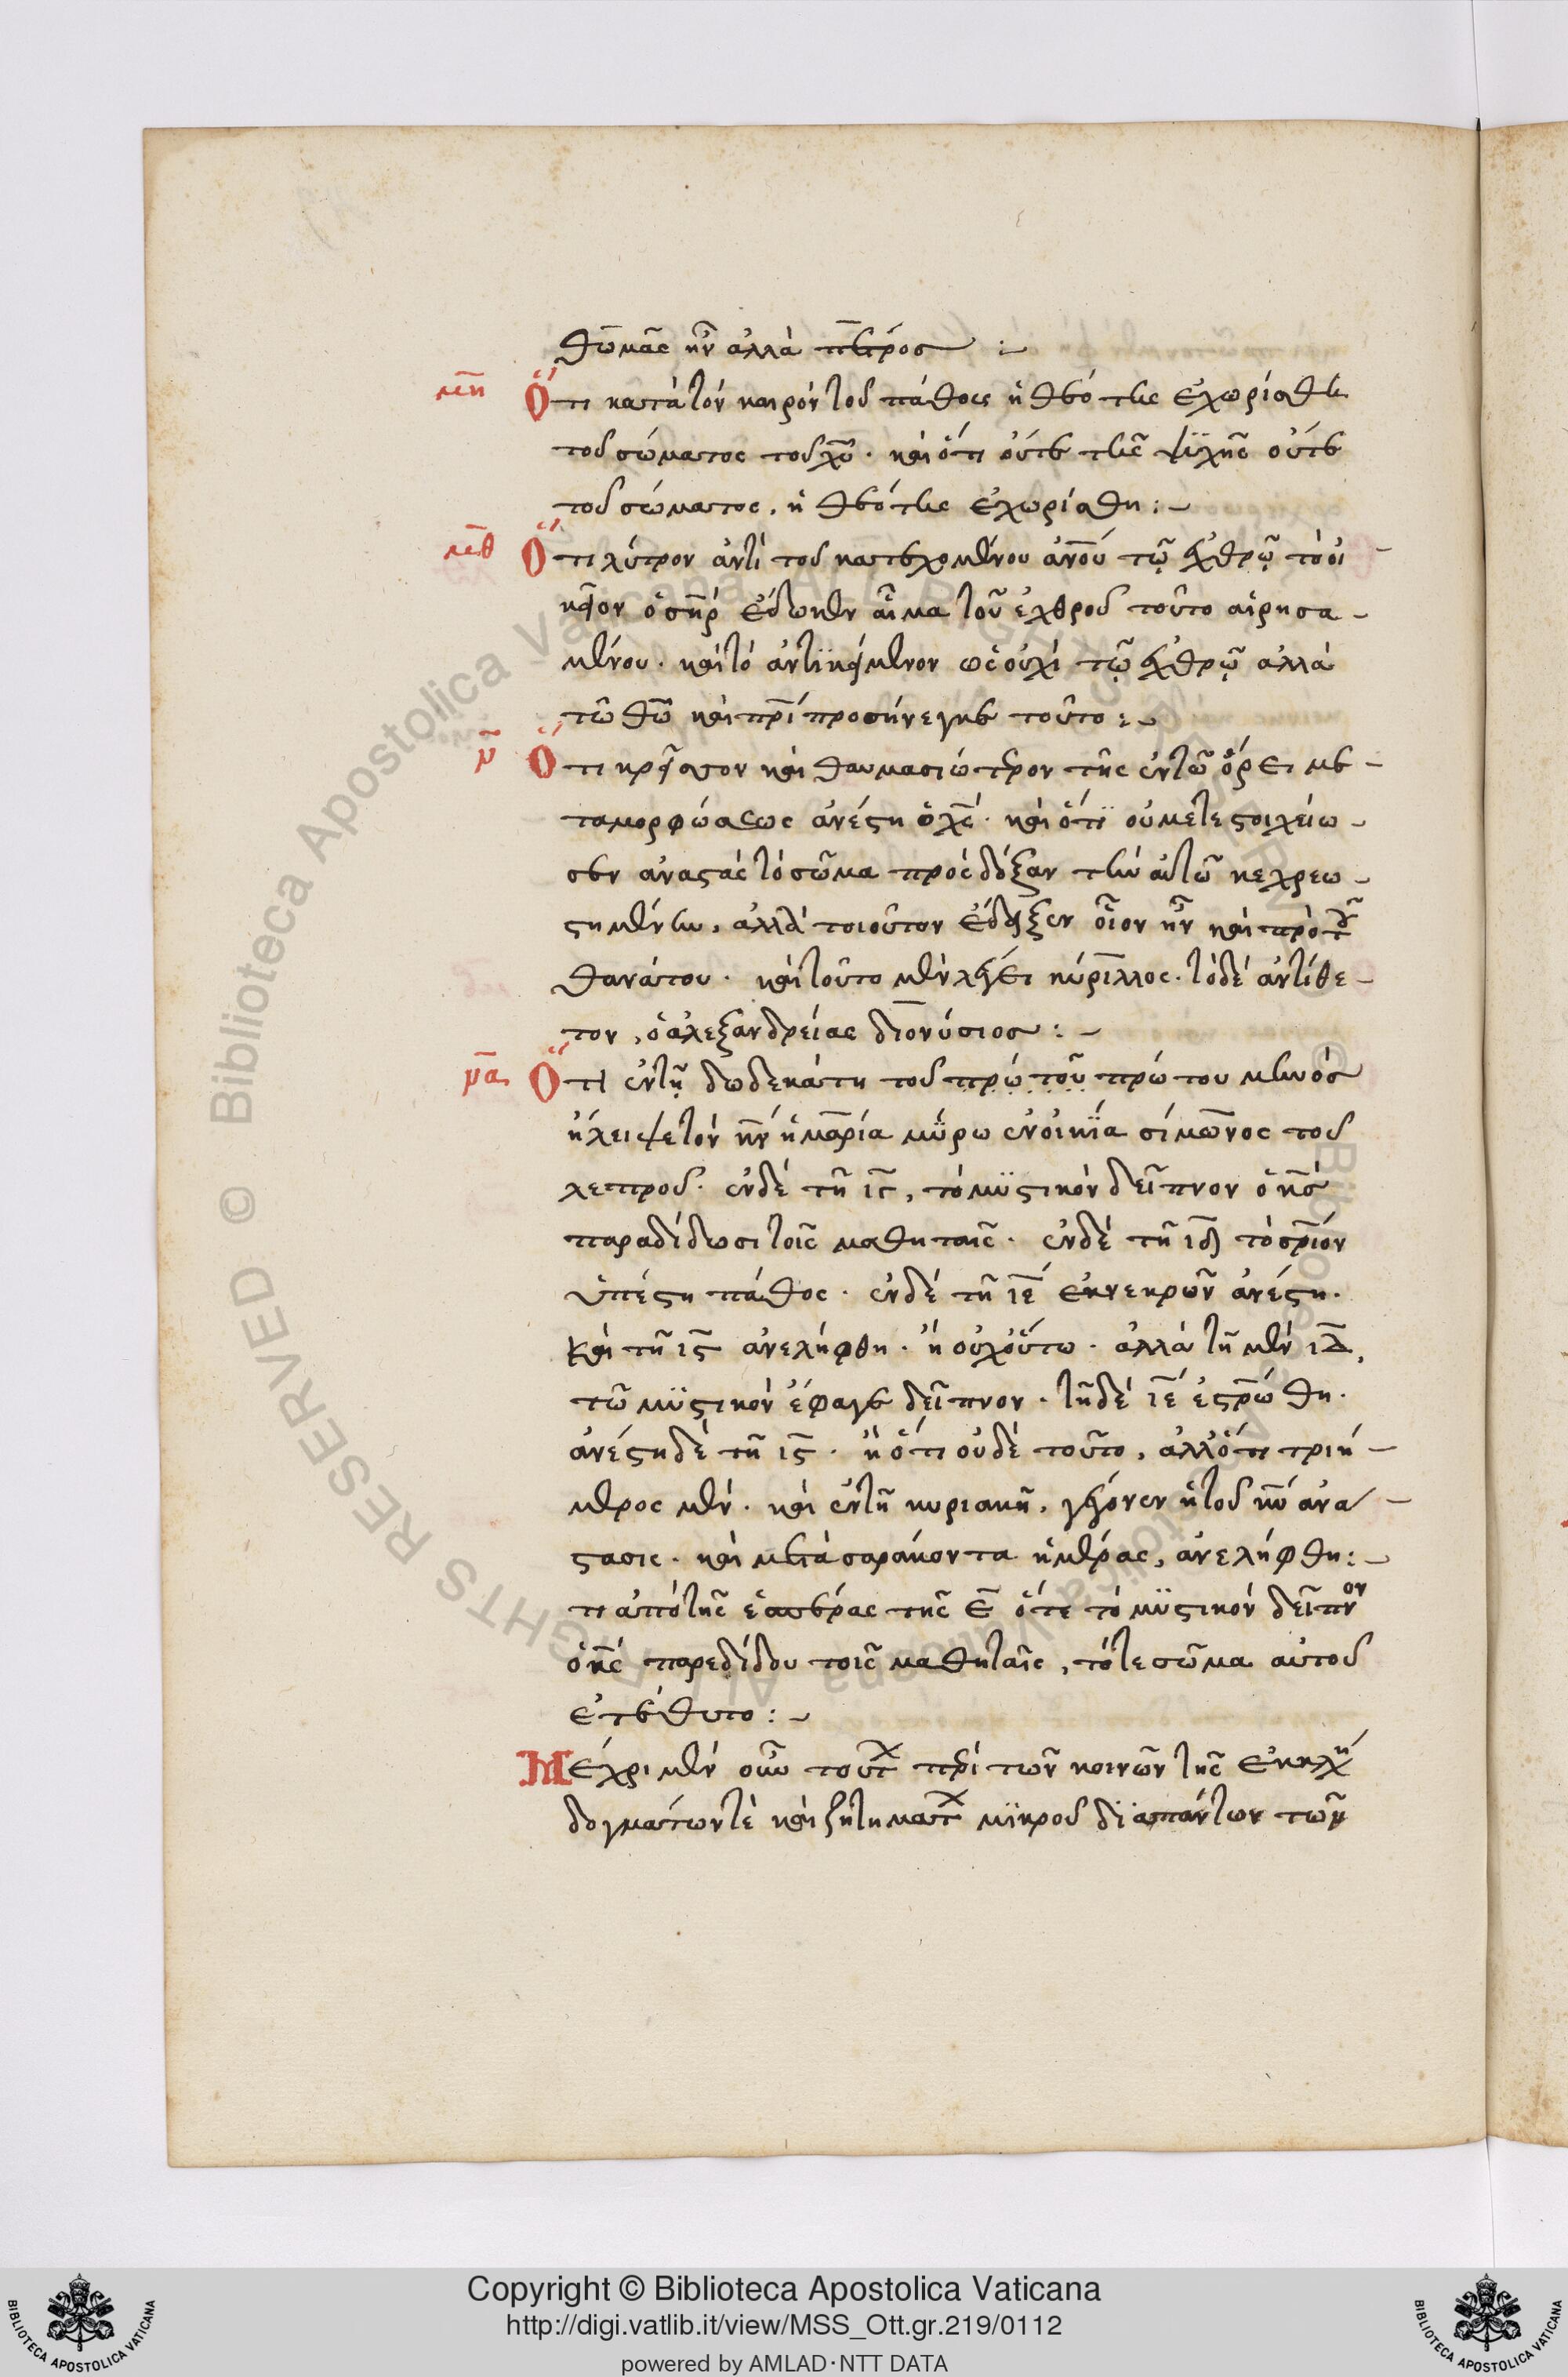 θωμᾶς ἦν ἀλλὰ πέτρος :~
μη Ὅτι κατὰ τὸν καιρὸν τοῦ πάθους ἡ θεότης ἐχωρίσθη
τοῦ σώματος τοῦ χυ̅. καὶ ὅτι οὔτε τῆς ψϋχῆς οὔτε
τοῦ σώματος, ἡ θεότης ἐχωρίσθη :~
μθ Ὅτι λύτρον ἀντὶ τοῦ κατεχομένου ἀν̅ου τῷ ἐχθρῷ τὸ οἰ
κεῖον ὁ σ̅ηρ ἔδωκεν αἷμα τοῦ ἐχθροῦ τοῦτο αἱρησα-
μένου. καὶ τὸ ἀντϊκείμενον ὡς οὐχὶ τῷ ἐχθρῷ ἀλλὰ
τῶ θω̅ καὶ π̅ρι προσήνεγκε τοῦτο :~
ν Ὅτι κρεῖσσον καὶ θαυμασιώτερον τῆς ἐν τῶ ὄρει με-
ταμορφώσεως ἀνέστη ὁ χς̅. καὶ ὅτϊ οὐ μετεστοιχείω-
σεν ἀναστὰς τὸ σῶμα πρὸς δόξαν τὴν αὐτῶ κεχρεω-
στημένην, ἀλλὰ τοιοῦτον ἔδειξεν οἷον ἦν καὶ πρὸ τοῦ
θανάτου. καὶ τοῦτο μὲν λέγει κύριλλος. τὸ δὲ ἀντίθε-
τον, ὁ ἀλεξανδρείας διονύσιος :~
να Ὅτι ἐν τῇ δωδεκάτη τοῦ πρώτου πρώτου μηνὸς
ἤλειψε τὸν κ̅ν ἡ μαρία μΰρω ἐν οἰκΐα σίμωνος τοῦ
λεπροῦ. ἐν δὲ τῆ ιγ, τὸ μϋστικὸν δεῖπνον ὁ κ̅ς
παραδίδωσι τοῖς μαθηταῖς. ἐν δὲ τῆ ιδ τὸ σ̅ριον
ὑπέστη πάθος. ἐν δὲ τῆ ιε ἐκ νεκρῶν ἀνέστη.
καὶ τῆ ις ἀνελήφθη. ἢ οὐχ οὕτω. ἀλλὰ τῆ μὲν ιδ,
τῶ μϋστικὸν ἔφαγε δεῖπνον. τῆ δὲ ιε ἐσ̅ρώθη.
ἀνέστη δὲ τῆ ις. ἢ ὅτι οὐδὲ τοῦτο, ἀλλ' ὅτι τριή-
μερος μὲν. καὶ ἐν τῆ κυριακῆ, γέγονεν ἡ τοῦ κ̅υ ἀνα-
στασις. καὶ μετὰ σαράκοντα ἡμέρας, ἀνελήφθη :~
τι ἀπὸ τῆς ἑσπέρας τῆς ε ὅτε τὸ μϋστικὸν δεῖπνον
ὁ κ̅ς παρεδίδου τοῖς μαθηταῖς, τότε σῶμα αὐτοῦ
ἐτέθυτο :~
Μέχρι μὲν οὖν τούτων περὶ τῶν κοινῶν τῆς ἐκκλη
δογμάτων τὲ καὶ ζητημάτων μϊκροῦ δϊαπάντων τῶν
Copyright © Biblioteca Apostolica Vaticana
http://digi.vatlib.it/view/MSS_Ott.gr.219/0112
powered by AMLAD·NTT DATA